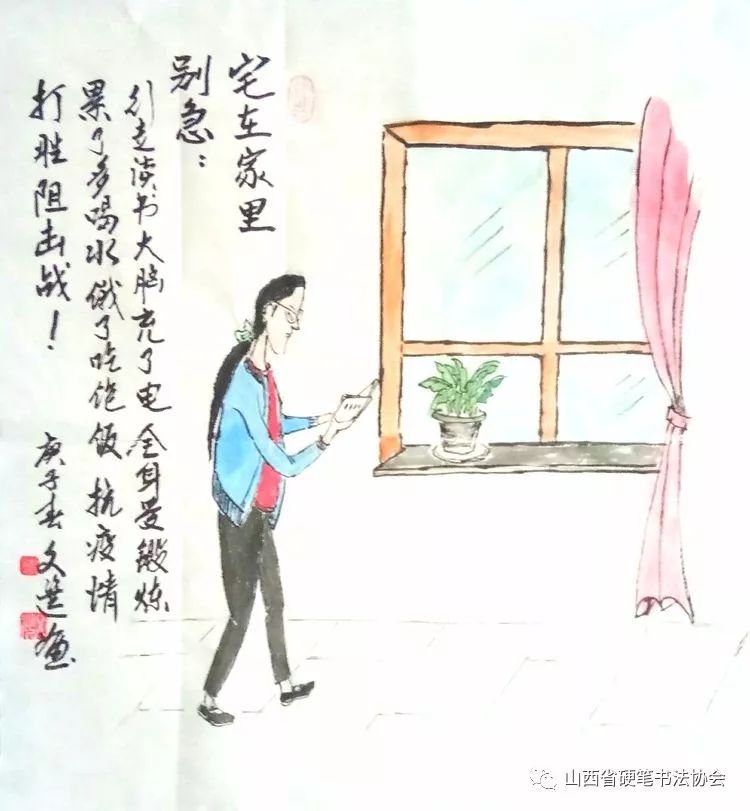 宅在家里
别急：
行走读书大脑充了电全身受锻炼
累了多喝水饿了吃饱饭抗疫情
打胜阻击战！
庚子春文选画
山西省硬笔书法协会